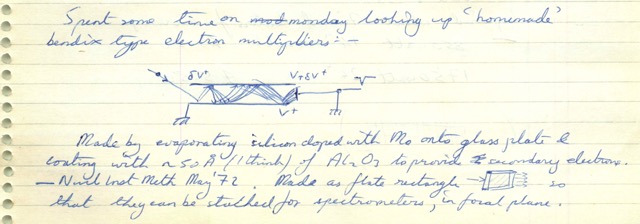 Spent some time on mod monday looking up "homemade"
bendix type electron multipliers:-
δV+ V+δV+
V+
Made by evaporating silicon doped with Mo onto glass plate &
coating with ~50Å (I think) of Al2O3 to provide secondary electrons.
- Nucl Inst Meth May '72. Made as flate rectangle → so
that they can be stacked for spectrometers, in focal plane.